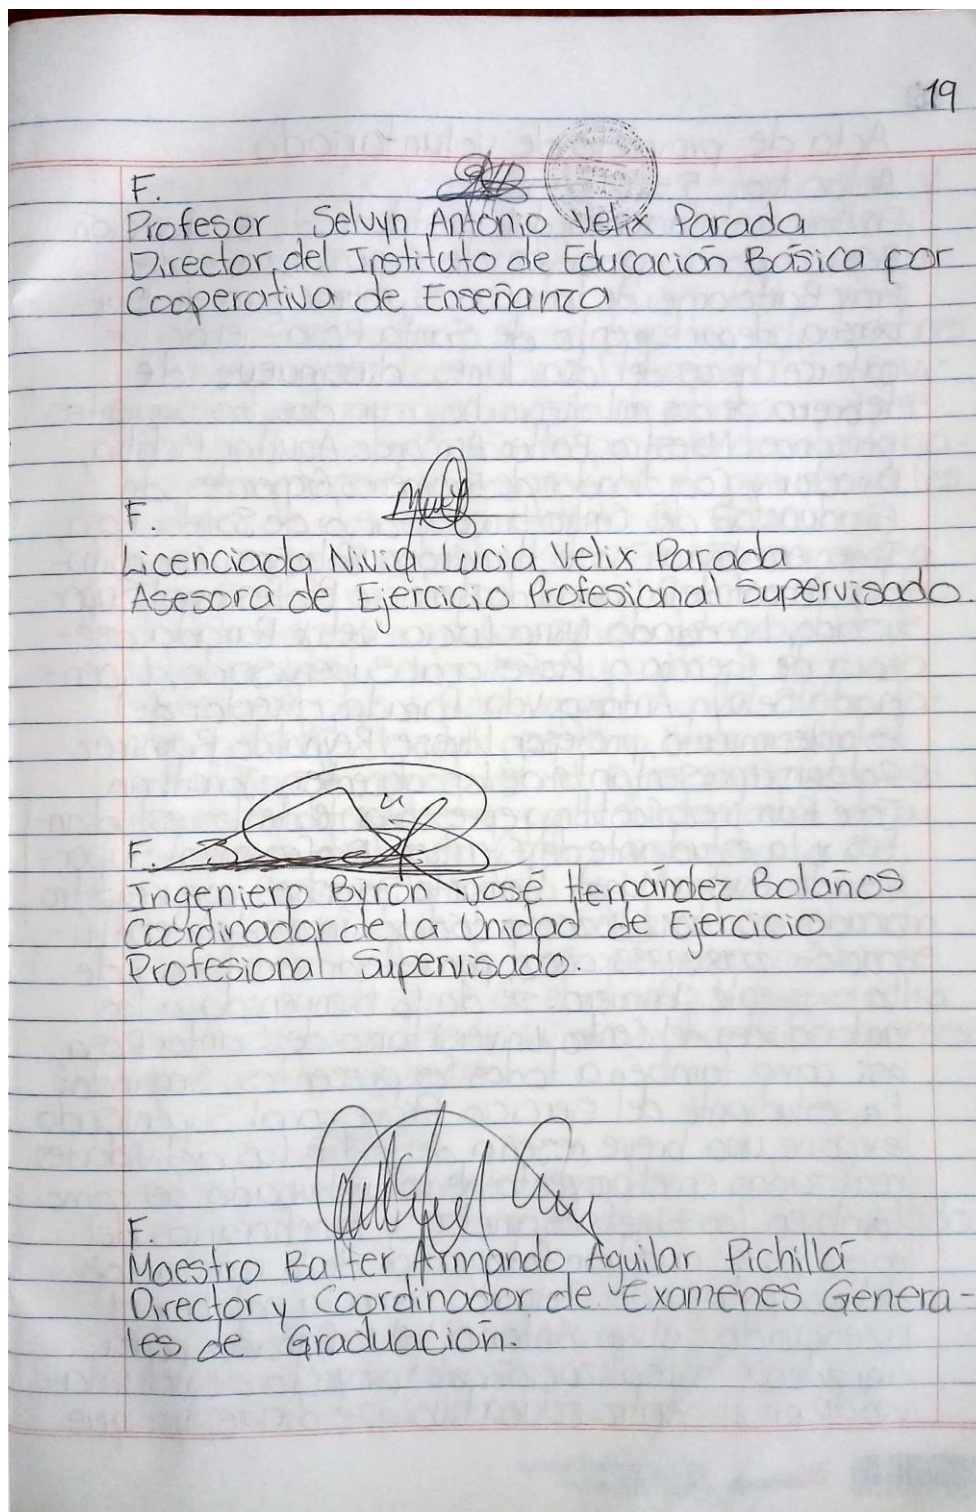 19
F.
Profesor Selvyn Antonio Velix Parada
Director del Instituto de Educación Básica por
Cooperativa de Enseñanza
F.
Licenciada Nivia Lucia Velix Parada
Asesora de Ejercicio Profesional Supervisado.
F.
Ingeniero Byron José Hernández Bolaños
Coordinador de la Unidad de Ejercicio
Profesional Supervisado.
F.
Maestro Balter Armando Aguilar Pichillá
Director y Coordinador de Examenes Genera-
les de Graduación.